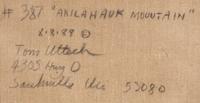 # 387 "AKILAHAUK MOUNTAIN"
8.8.89 ©
Tom Uttech
4305 Hwy O
Saukville Wis 53080